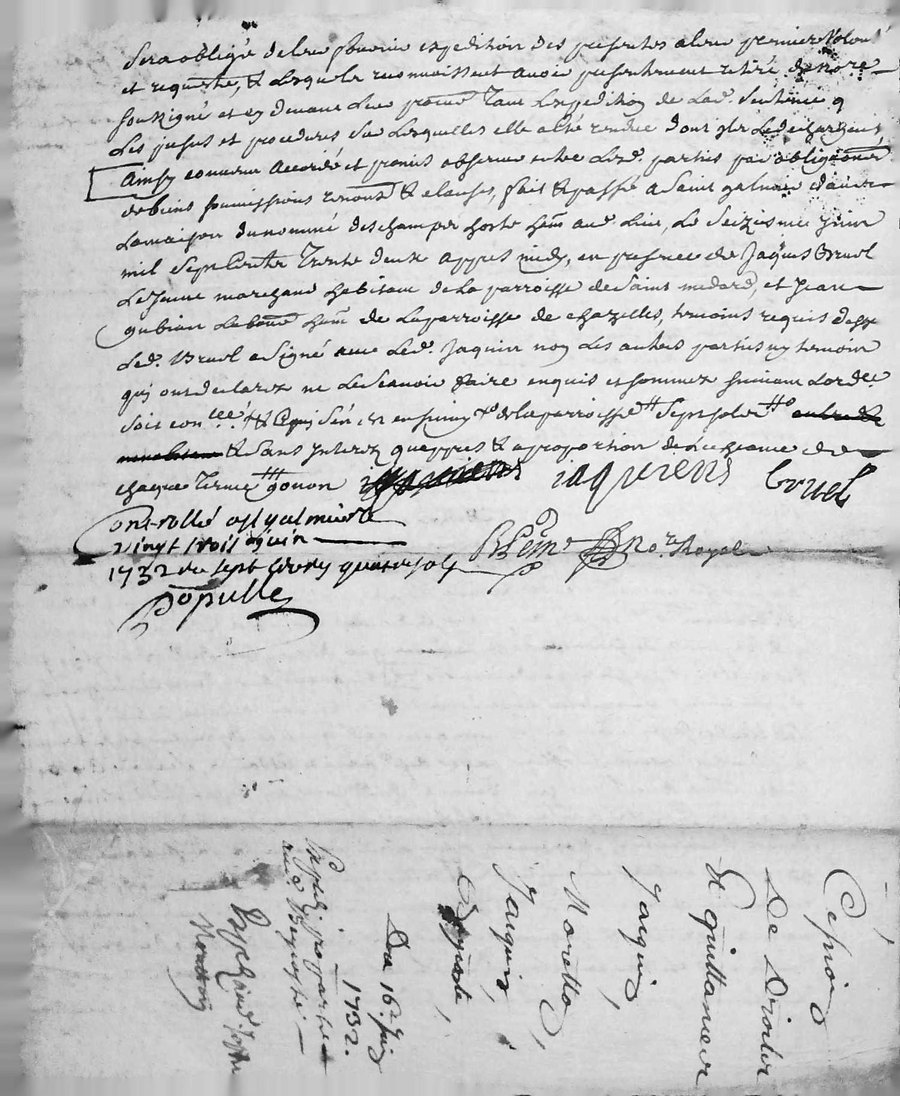 sera obligé de leur fournir expedition des presentes a leur premier volonté
et requeste, & lesquels reconnoissent avoir presentement retiré de nore
soussigné et cy devant leur tant expedition de lad. sentence q
les pieces et procedures sur lesquelles elle a été rendue dont ils le dechargent
Ainsy convenu accordé et promis observer entre lesd. parties par obligaons
de biens soumissions renons & clauses, fait & passé a Saint galmier dans
la maison du nommé deschamps hoste aud. lieu, le seizieme juin
mil sept cents trente deux apprès midy, en presence de Jaques Bruel
le jeune marchand habitant de la parroisse de Saint medard, et jean
gubian labour de la parroisse de chazelles, temoins requis
led. Bruel a signé avec led. jaquin non les autres parties ny temoin
qui ont declarez ne le scavoir faire enquis et sommez suivant lordce
soit conllé de la parroisse sept
& sans interez qu'appres & a proportion de lecheance de
chaque terme
jaquiens Bruel
Controllé a St galmier le
vingt trois juin
1732 reçu sept livres quatre sols
Nore Royal
Populle
Cession
De Droits
Et quittance
Jaquin,
Moretton,
Jaquin,
Du 16e Juin
1732.
Expedié pr partie